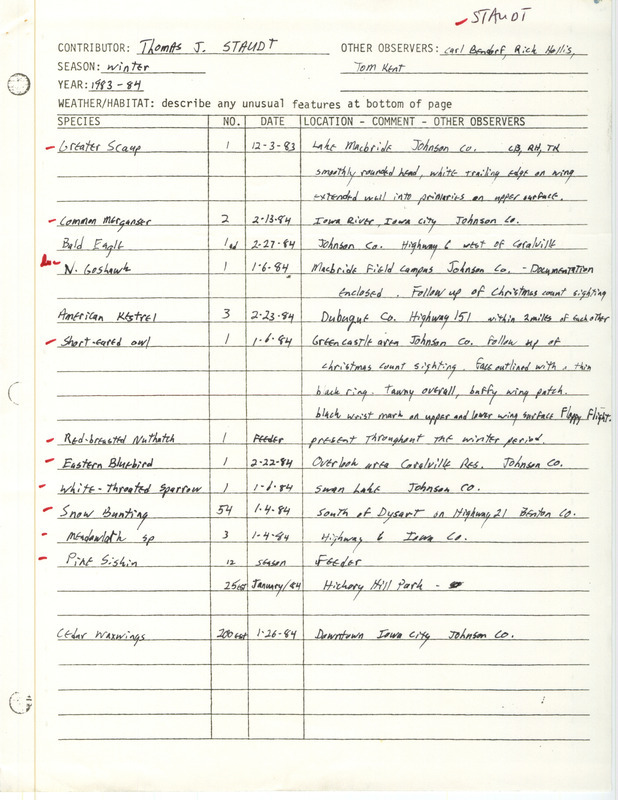 STAUDT
CONTRIBUTOR: Thomas J. STAUDT OTHER OBSERVERS: Carl Bendorf, Rick Hollis,
SEASON: Winter Tom Kent
YEAR: 1983-84
WEATHER/HABITAT: describe any unusual features at bottom of page
SPECIES NO. DATE LOCATION - COMMENT - OTHER OBSERVERS
Greater Scaup 1 12-3-83 Lake Macbride Johnson Co. CB, RH, TK
smoothly rounded head, white trailing edge on wing
extended well into primaries on upper surface.
Common Merganser 2 2-13-84 Iowa River, Iowa City Johnson Co.
Bald Eagle 1 ad 2-27-84 Johnson Co. Highway 6 west of Coralville
N. Goshawk 1 1-6-84 Macbride Field Campus Johnson Co. - Documentation
enclosed. Follow up of Christmas count sighting
American Kestrel 3 2-23-84 Dubuque Co. Highway 151 within 2 miles of each other
Short-eared owl 1 1-6-84 Greencastle area Johnson Co. Follow up of
christmas count sighting. Face outlined with a thin
black ring. Tawny overall, buffy wing patch.
black wrist mark on upper and lower wing surface Floppy Flight.
Red-breasted Nuthatch 1 Feeder present Throughout the winter period.
Eastern Bluebird 1 2-22-84 Overlook area Coralville Res. Johnson Co.
White-Throated Sparrow 1 1-6-84 Swan Lake Johnson Co.
Snow Bunting 54 1-4-84 South of Dysart on Highway 21 Benton Co.
Meadowlark sp 3 1-4-84 Highway 6 Iowa Co.
Pine Siskin 12 season Feeder
25est January/84 Hickory Hill Park -
Cedar Waxwings 200est 1-26-84 Downtown Iowa City Johnson Co.